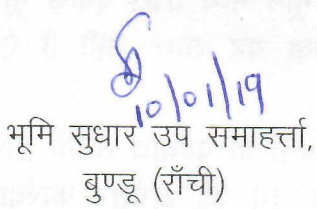 10/01/19
भूमि सुधार उप समाहर्त्ता,
बुण्डू (राँची)